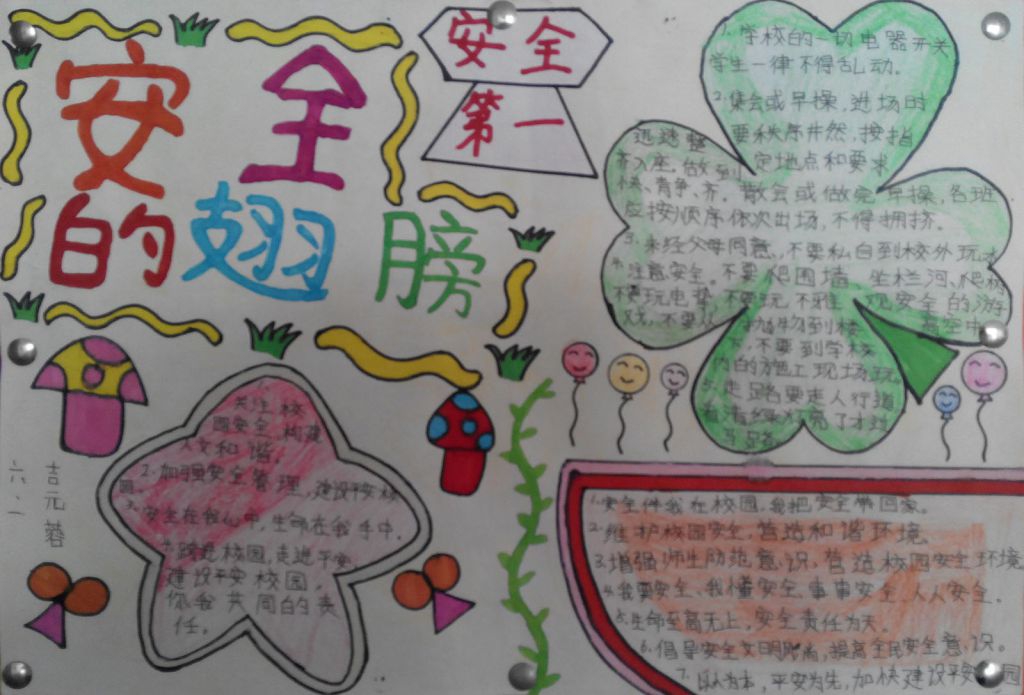 安全
的翅膀
安全
第一
1.学校的一切电器开关
学生一律不得乱动。
2.集会或早操,进场时
要秩序井然,按指
定地点和要求
迅速整
齐入座,做到
快、青争、齐。散会或做完早操,各班
应按顺序依次出场,不得拥挤。
3.未经父母同意,不要私自到校外玩水
4.注意安全。不要爬围墙 坐栏河,爬树
不要玩
观安全的游
戏,不要从高空中
抛物到楼
下,不要到学校
内的施工现场玩。
5.走路要走人行道
马路
六、一
吉元蓉
1.关注校
园安全,构建
人文和谐。
2.加强安全管理,建设平安校
园。
3.安全在我心中,生命在我手中。
4.跨进校园,走进平安,
建设平安校园,
你我共同的责
任。
1.安全伴我在校园,我把安全带回家。
2.维护校园安全,营造和谐环境。
3.增强师生防范意识,营造校园安全环境
4.我要安全、我懂安全、事事安全、人人安全。
5.生命至高无上,安全责任为天。
6.倡导安全文明风尚,提高全民安全意识。
7.以人为本,平安为先,加快建设平安校园